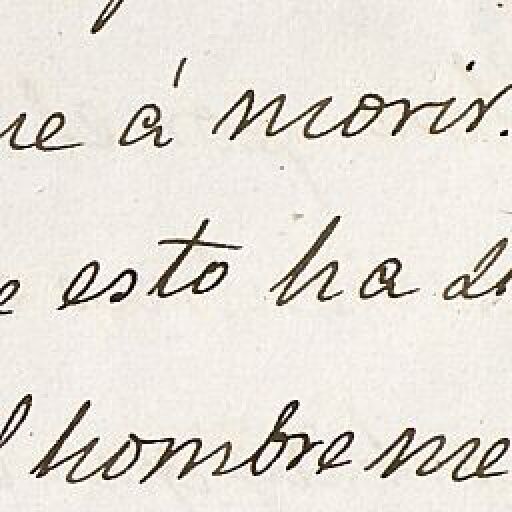 ue á morir.
e esto ha d
l hombre me